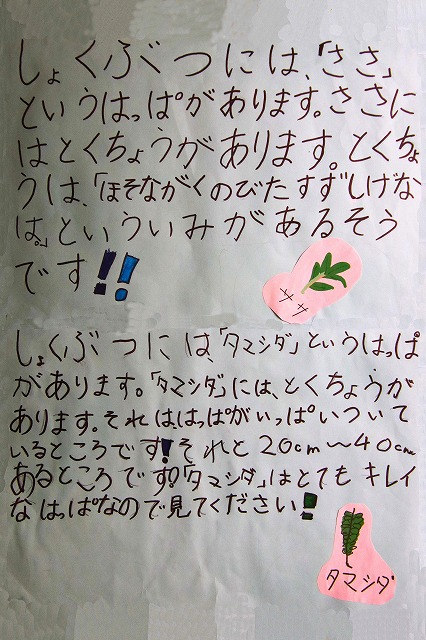 しょくぶつには、「ささ」
というはっぱがあります。ささに
はとくちょうがあります。とくちょ
うは、「ほそながくのびたすずしげな
は。」といういみがあるそう
です!!
ササ
しょくぶつには、「タマシダ」というはっぱ
があります。「タマシダ」には、とくちょうが
あります。それははっぱがいっぱいついて
いるところです!それと20cm〜40cm
あるところです!「タマシダ」はとてもキレイ
なはっぱなので見てください!
タマシダ